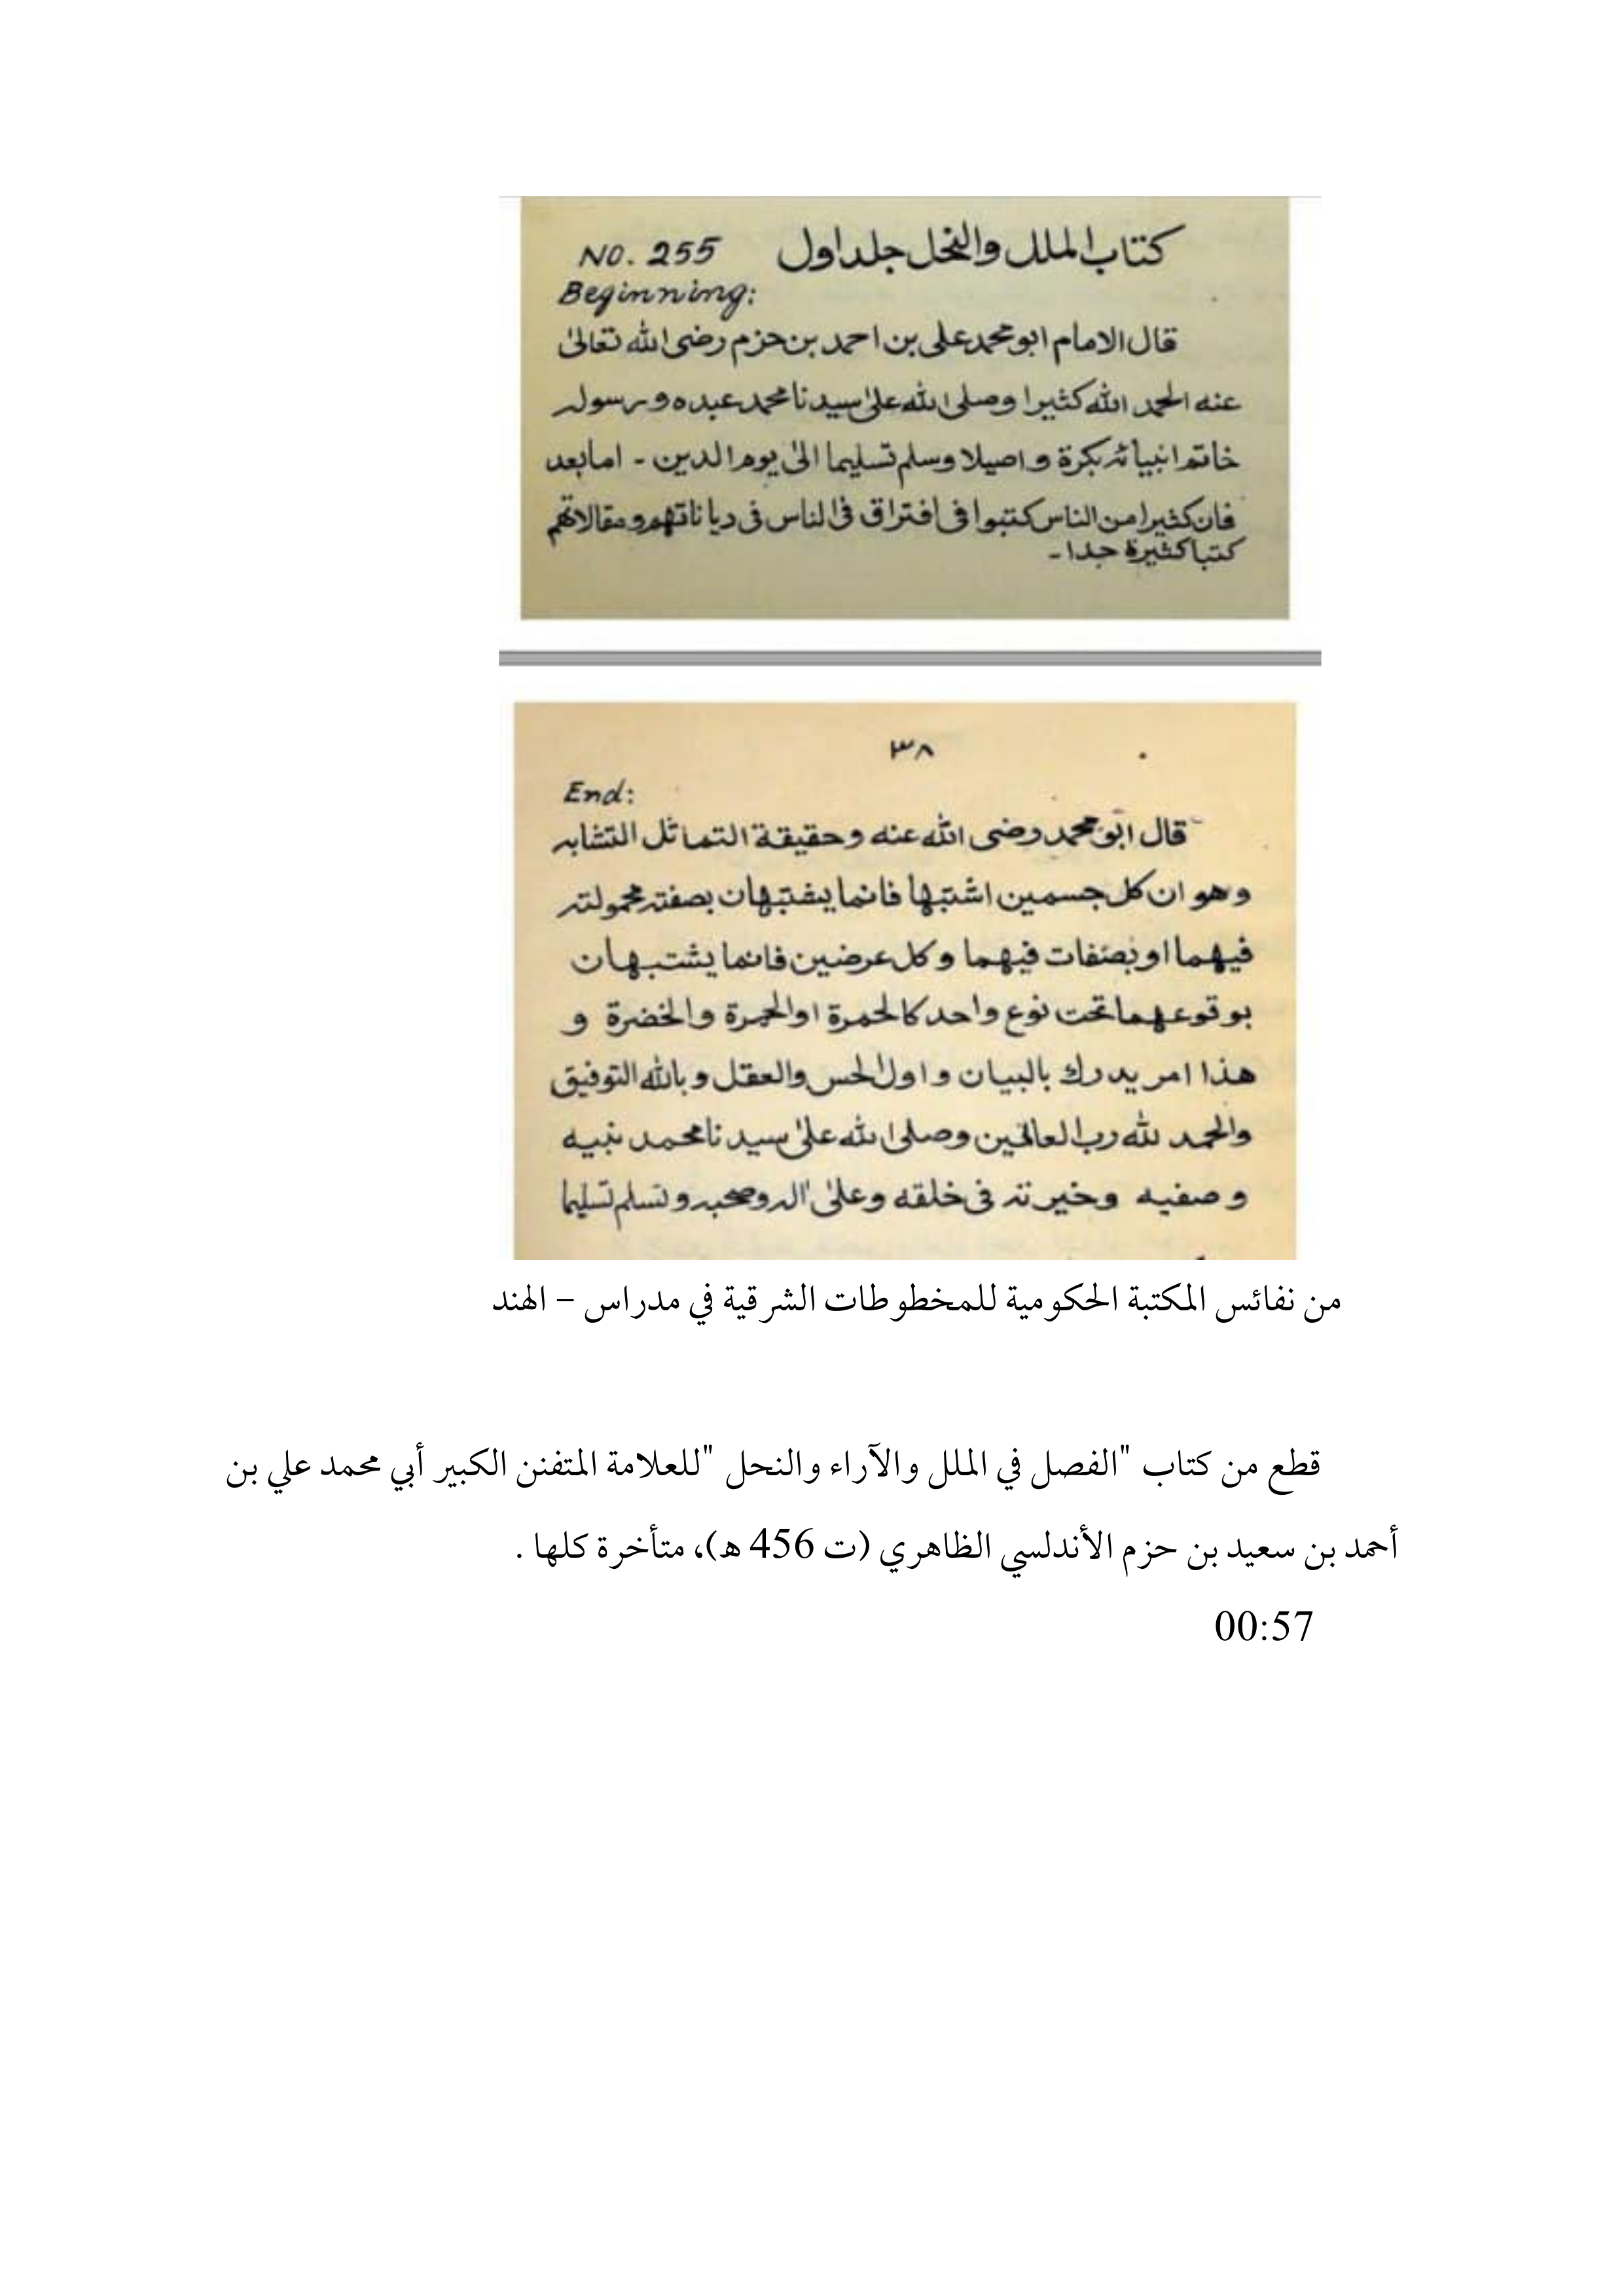 كتاب الملل والنحل جلد اول NO. 255
Beginning:
قال الامام ابو محمد على بن احمد بن حزم رضى الله تعالىٰ
عنه الحمد الله كثيرا وصلى الله علىٰ سيدنا محمد عبده ورسوله
خاتم انبيائه بكرة واصيلا وسلم تسليما الىٰ يوم الدين - امابعد
فان كثيرا من الناس كتبوا فى افتراق فى الناس فى دياناتهم ومقالاتهم
كتبا كثيرة جدا -
٣٨
End:
قال ابو محمد رضى الله عنه وحقيقة التماثل التشابه
وهو ان كل جسمين اشتبها فانما يشتبهان بصفته محمولته
فيهما او بصفات فيهما وكل عرضين فانما يشتبهان
بوقوعهما تحت نوع واحد كالحمرة اوالحمرة والخضرة و
هذا امر يدرك بالبيان واول الحس والعقل وبالله التوفيق
والحمد لله رب العالمين وصلى الله علىٰ سيدنا محمد نبيه
وصفيه وخيرته فى خلقه وعلىٰ اله وصحبه وتسلم تسليما
من نفائس المكتبة الحكومية للمخطوطات الشرقية في مدراس – الهند
قطع من كتاب "الفصل في الملل والآراء والنحل "للعلامة المتفنن الكبير أبي محمد علي بن
أحمد بن سعيد بن حزم الأندلسي الظاهري (ت 456 ه)، متأخرة كلها .
00:57